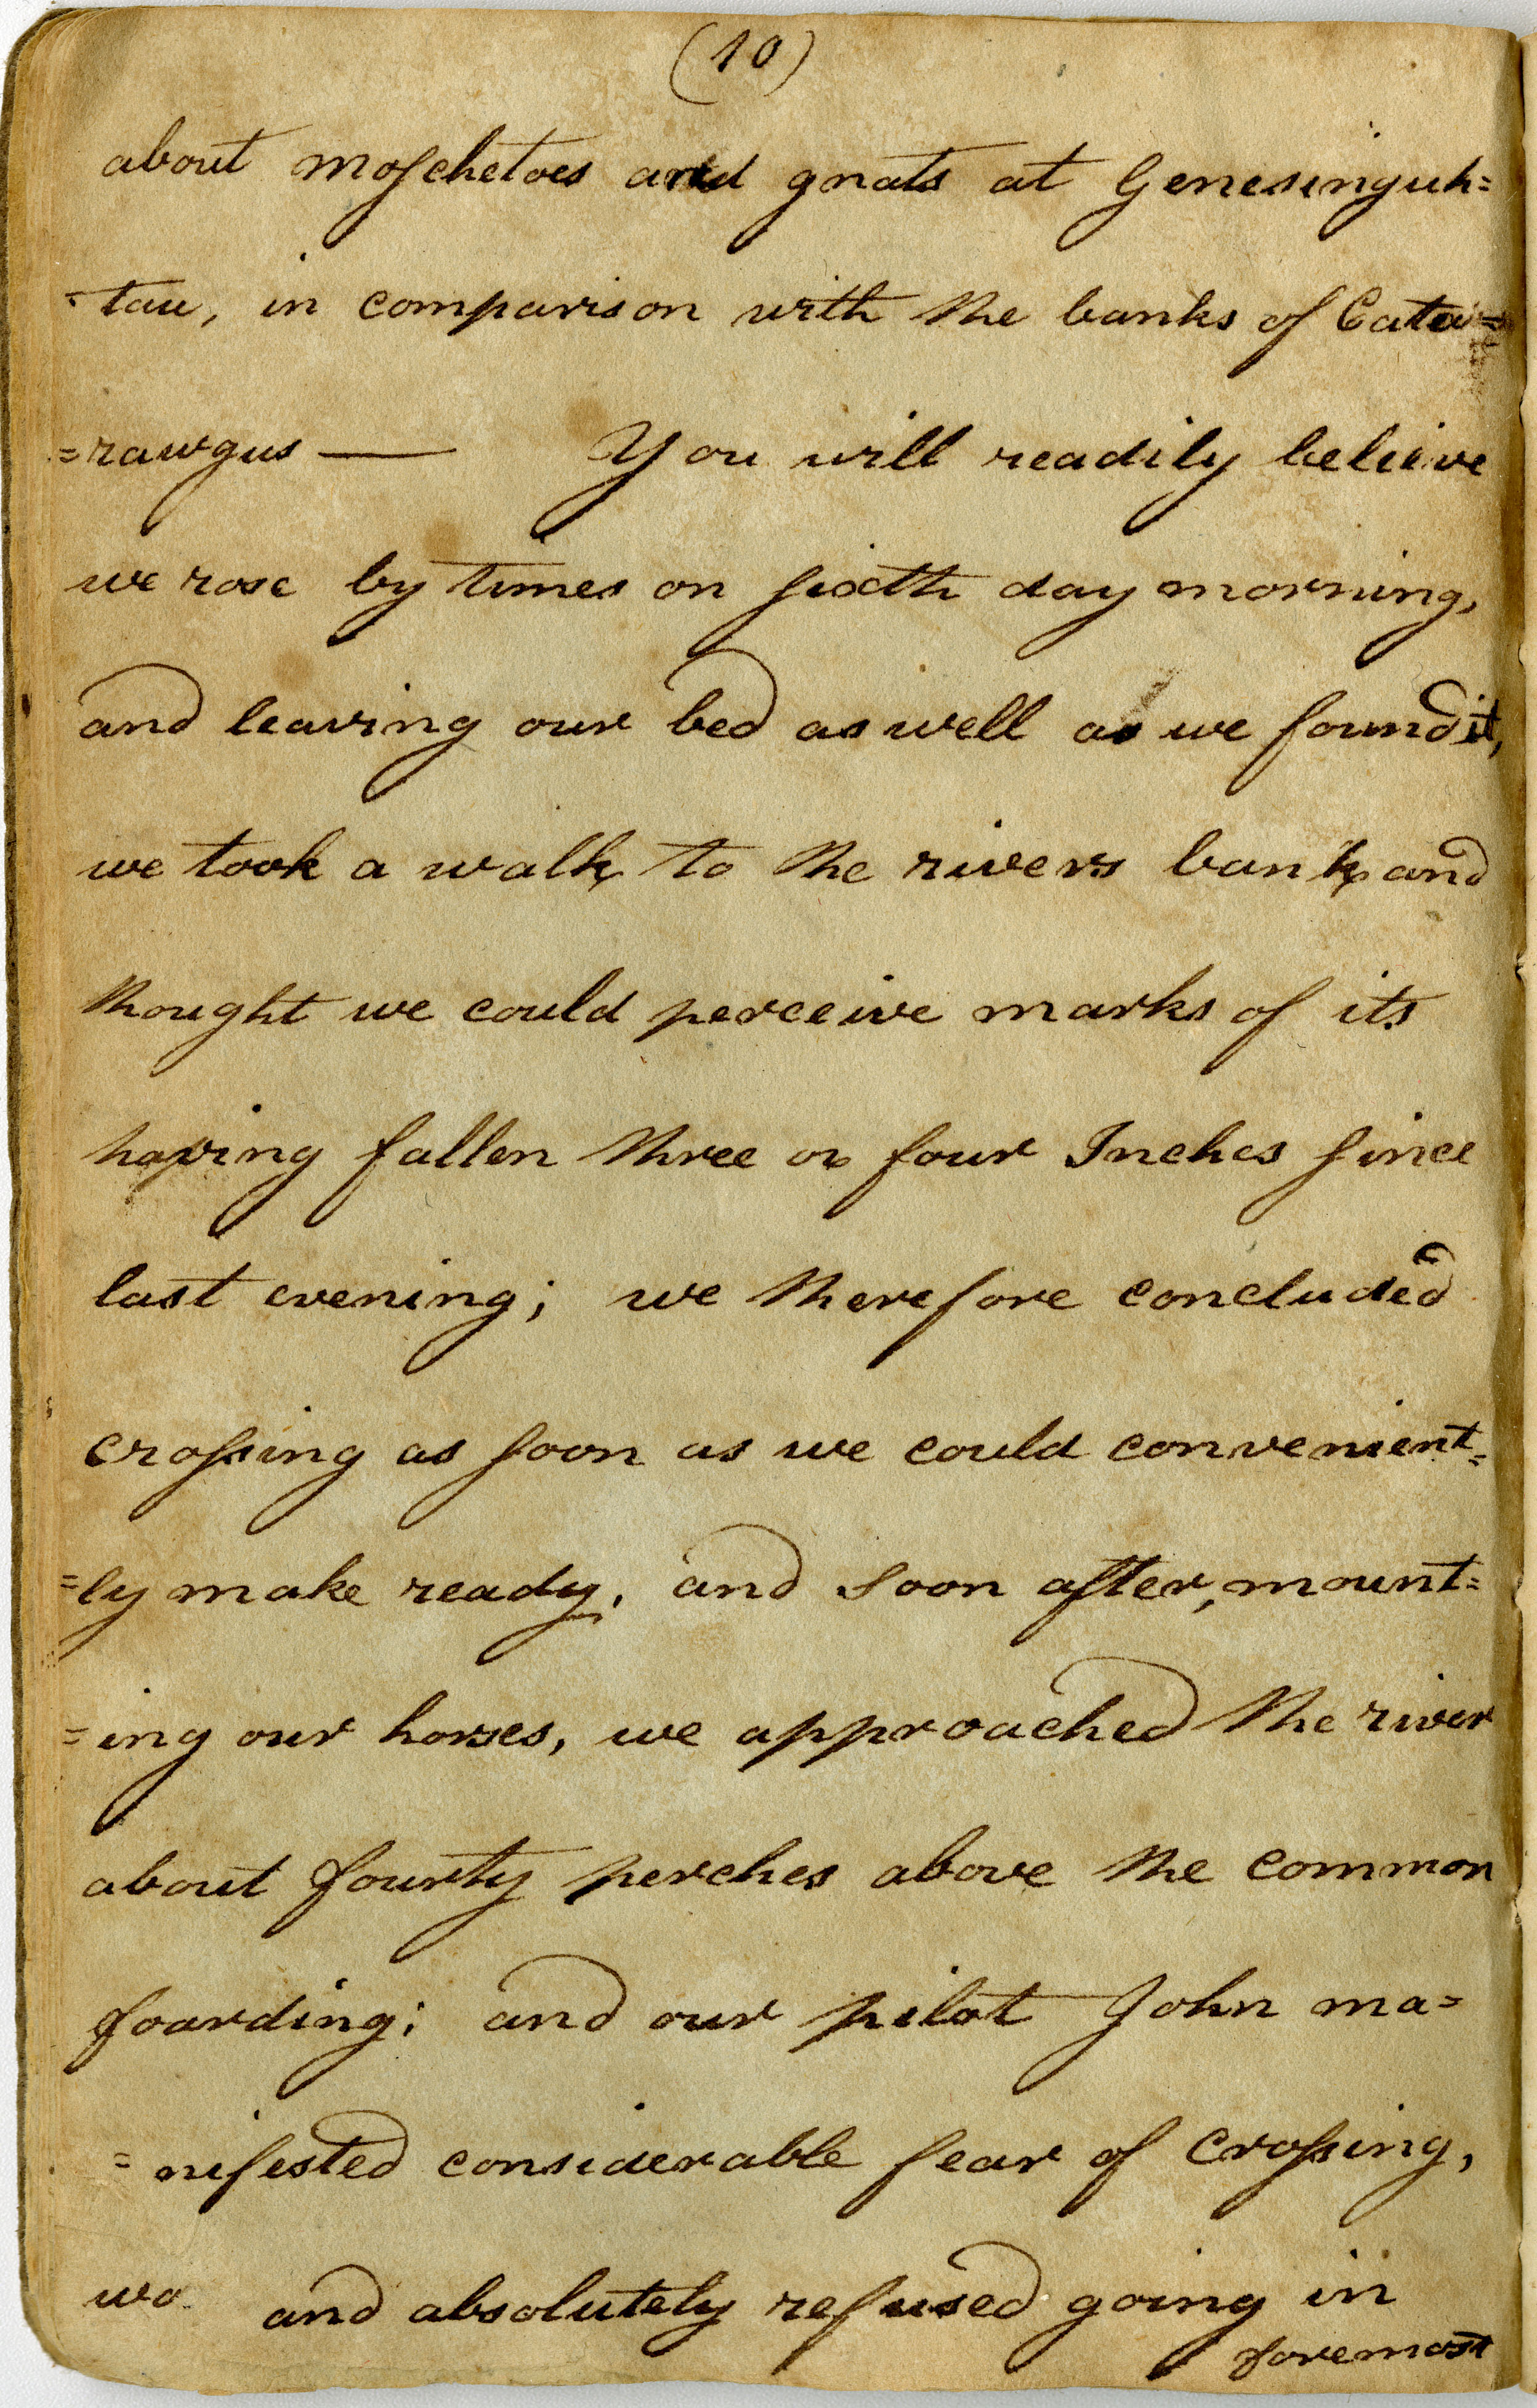 (10)
about moschetoes and gnats at Genesinguh=
=tau, in comparison with the banks of Cata=
=rawgus — You will readily believe
we rose by times on sixth day morning,
and leaving our bed as well as we found it,
we took a walk to the rivers bank and
thought we could perceive marks of its
having fallen three or four Inches since
last evening; we therefore concluded
crossing as soon as we could convenient=
=ly make ready, and soon after, mount=
=ing our horses, we approached the river
about fourty perches above the common
foarding; and our pilot John ma=
=nifested considerable fear of crossing,
wo and absolutely refused going in
foremost